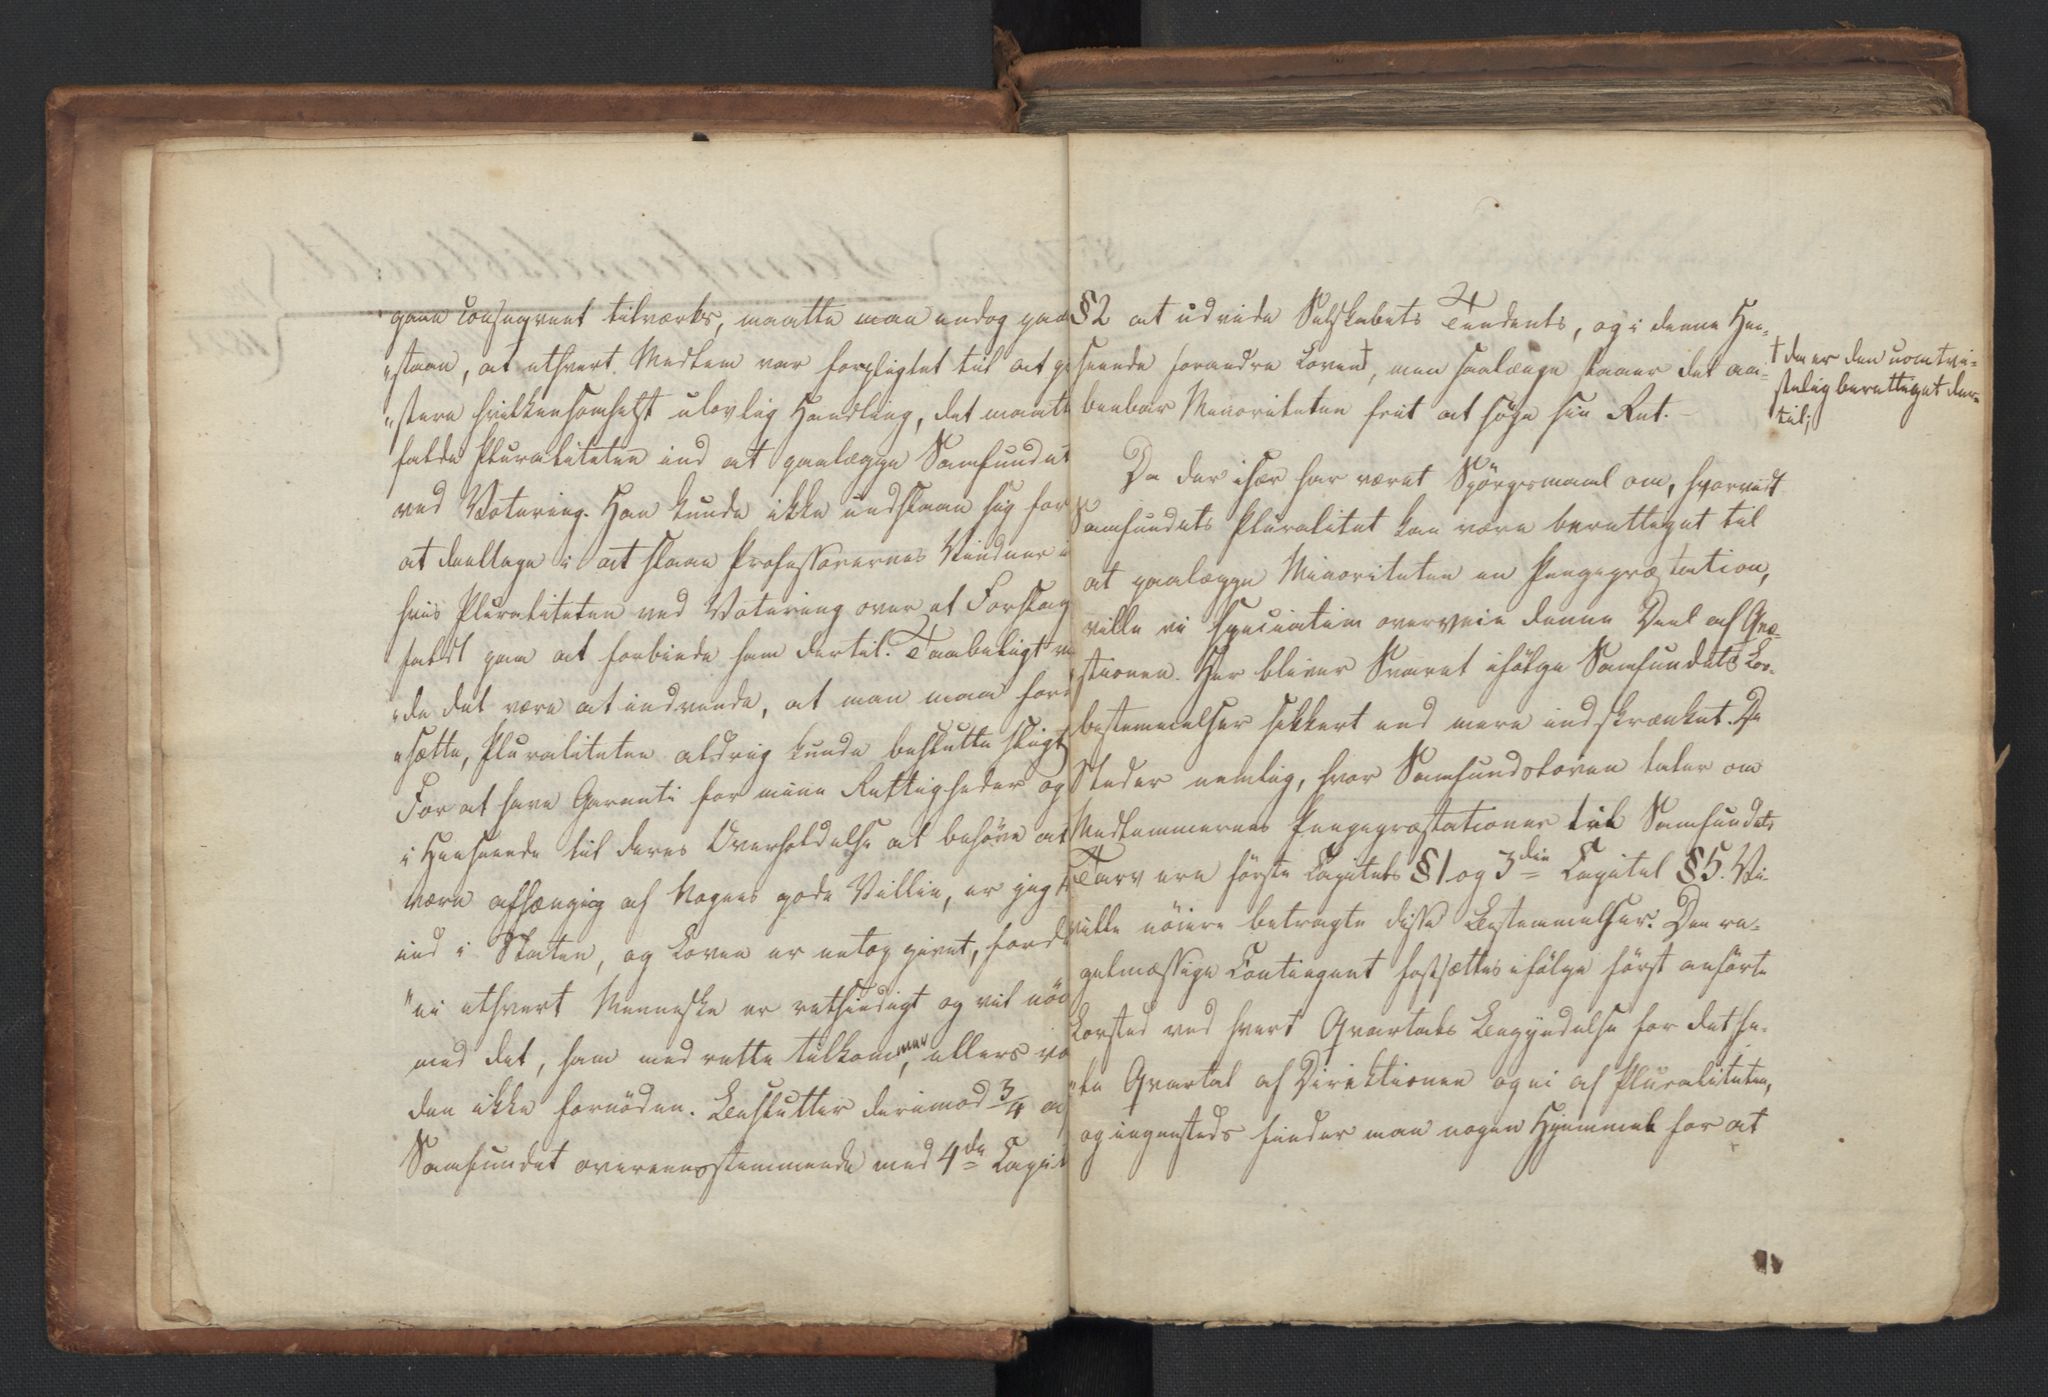 gaae conseqvent tilværks, maatte man endog paa-
"staae, at ethvert Medlem var forpligtet til at
"stere hvilkensomhelst ulovlig Handling, det maatte
falde Pluraliteten ind at paalægge Samfundet
ved Votering. Han kunde ikke undslaae sig for
at deeltage i at slaae Professorernes Vinduer
hvis Pluraliteten ved Votering over et Forslag
faldt paa at forbinde ham dertil. Taabeligt
"de det være at indvende, at man maa for
"sætte, Pluraliteten aldrig kunde beslutte sligt
For at have Garanti for mine Rettigheder og
i Henseende til deres Overholdelse at behöve at
være afhængig af Nogens gode Villie, er jeg
ind i Staten, og Loven er netop givet, fordi
"ei ethvert Menneske er retsindigt og vil nöie
med det, ham med rette tilkommer, ellers
den ikke fornöden. Beslutter derimod 3/4 af
Samfundet overeensstemmende med 4de Capitel
§2 at udvide Selskabets Tendents, og i denne Hen-
seende forandre Loven†, men saalænge staaer det aa-
benbar Minoriteten frit at söge sin Ret. –
† da er den uomtvi-
stelig berettiget der-
til;
Da der især har været Spörgsmaal om, hvorvidt
Samfundets Pluralitet kan være berettiget til
at paalægge Minoriteten en Pengepræstation,
ville vi speciatim overveie denne Deel af Qvæ-
stionen. Her bliver Svaret ifölge Samfundets Lov-
bestemmelser sikkert end mere indskrænket. De
Steder nemlig, hvor Samfundsloven taler om
Medlemmernes Pengepræstationer til Samfundets
Tarv ere förste Capitels §1 og 3die Capitel §5. Vi
ville nöiere betragte disse Bestemmelser. Den re-
gelmæssige Contingent fastsættes ifölge först anförte
Lovsted ved hvert Qvartals Begyndelse for det he-
"le Qvartal af Direktionen og ei af Pluraliteten,
og ingensteds finder man nogen Hjemmel for at